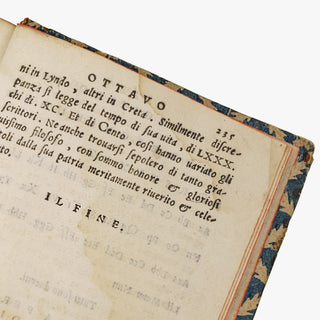 OTTAVO 235
ni in Lyndo, altri in Creta. Similmente discre-
panza si legge del tempo di sua vita, di LXXX.
chi di. XC. Et di Cento, cosi hanno variato gli
scrittori. Ne anche trovarsi sepolcro di tanto gra-
uissimo filosofo, con sommo honore & gloriosi
toli dalla sua patria meritamente riuerito & cele-
to.
IL FINE.